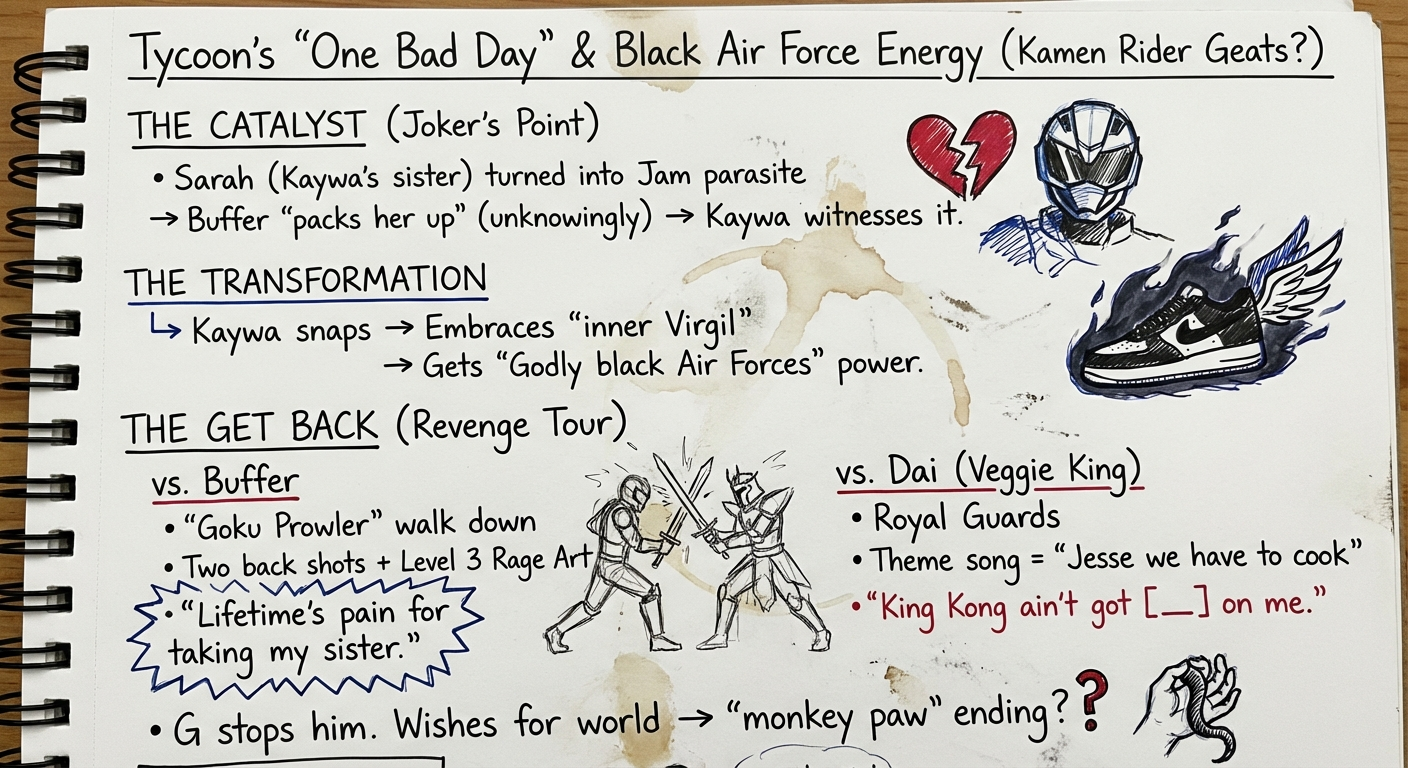 Tycoon's “One Bad Day” & Black Air Force Energy (Kamen Rider Geats?)
THE CATALYST (Joker's Point)
• Sarah (Kaywa's sister) turned into Jam parasite
→ Buffer “packs her up” (unknowingly) → Kaywa witnesses it.
THE TRANSFORMATION
↳ Kaywa snaps → Embraces “inner Virgil”
→ Gets “Godly black Air Forces” power.
THE GET BACK (Revenge Tour)
vs. Buffer
• “Goku Prowler” walk down
• Two back shots + Level 3 Rage Art
• “Lifetime's pain for
taking my sister.”
vs. Dai (Veggie King)
• Royal Guards
• Theme song = “Jesse we have to cook”
• “King Kong ain't got [__] on me.”
• G stops him. Wishes for world → “monkey paw” ending??